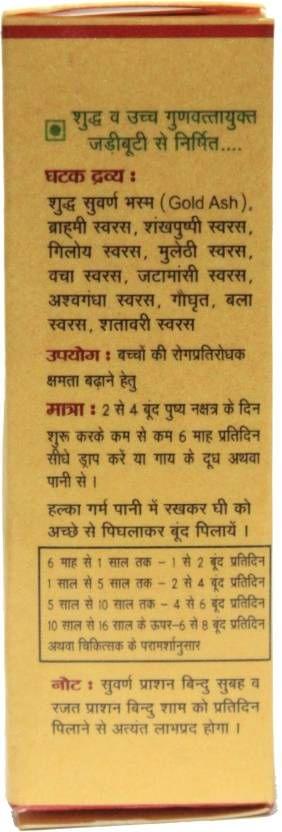 शुद्ध व उच्च गुणवत्तायुक्त
जड़ीबूटी से निर्मित....
घटक द्रव्य :
शुद्ध सुवर्ण भस्म (Gold Ash),
ब्राहमी स्वरस, शंखपुष्पी स्वरस,
गिलोय स्वरस, मुलेठी स्वरस,
वचा स्वरस, जटामांसी स्वरस,
अश्वगंधा स्वरस, गौघृत, बला
स्वरस, शतावरी स्वरस
उपयोग : बच्चों की रोगप्रतिरोधक
क्षमता बढ़ाने हेतु
मात्रा : 2 से 4 बूंद पुष्य नक्षत्र के दिन
शुरू करके कम से कम 6 माह प्रतिदिन
सीधे ड्राप करें या गाय के दूध अथवा
पानी से ।
हल्का गर्म पानी में रखकर घी को
अच्छे से पिघलाकर बूंद पिलायें ।
6 माह से 1 साल तक - 1 से 2 बूंद प्रतिदिन
1 साल से 5 साल तक - 2 से 4 बूंद प्रतिदिन
5 साल से 10 साल तक - 4 से 6 बूंद प्रतिदिन
10 साल से 16 साल के ऊपर-6 से 8 बूंद प्रतिदिन
अथवा चिकित्सक के परामर्शानुसार
नोट : सुवर्ण प्राशन बिन्दु सुबह व
रजत प्राशन बिन्दु शाम को प्रतिदिन
पिलाने से अत्यंत लाभप्रद होगा ।